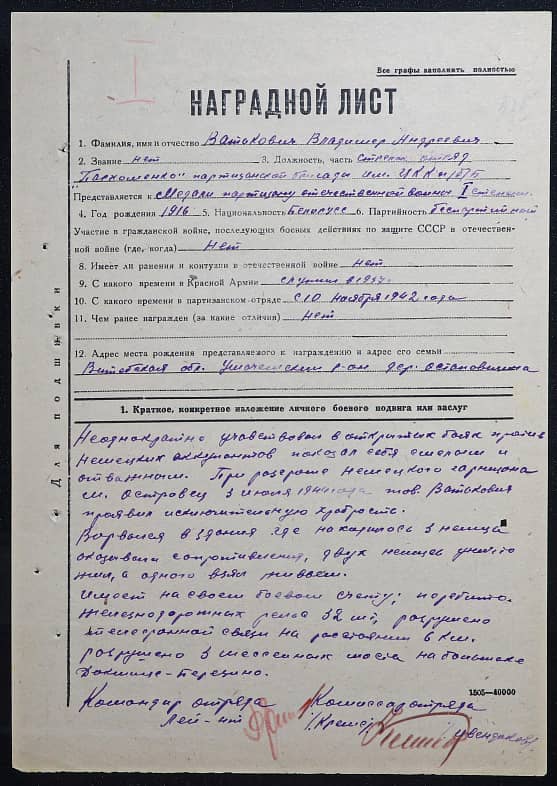 I
Все графы заполнить полностью
НАГРАДНОЙ ЛИСТ
1. Фамилия, имя и отчество Ватькович Владимир Андреевич
2. Звание нет 3. Должность, часть Стрелок отряд
Пархоменко" партизанской бригады им. ЦК КП/б/Б
Представляется к Медали партизану отечественной войны I степени
4. Год рождения 1916 5. Национальность Белорусс 6. Партийность беспартийный
Участие в гражданской войне, последующих боевых действиях по защите СССР в отечествен-
ной войне (где, когда) Нет
8. Имеет ли ранения и контузии в отечественной войне нет
9. С какого времени в Красной Армии служил в 1937г.
10. С какого времени в партизанском отряде с 10 ноября 1942 года
11. Чем ранее награжден (за какие отличия) нет
12. Адрес места рождения представляемого к награждению и адрес его семьи
Витебская обл. Ушачский р-он дер.
Для подшивки
1. Краткое, конкретное изложение личного боевого подвига или заслуг
Неоднократно участвовал в открытых боях против
немецких оккупантов показал себя смелым и
отважным. При разгроме немецкого гарнизона
м. Островец 3 июля 1944 года тов. Ватькович
проявил исключительную храбрость.
Ворвался в здания где находилось 3 немца
оказывали сопротивления, двух немцев уничто
жил, а одного взял живьем.
Имеет на своем боевом счету: перебито
железнодорожных рельс 32 шт, разрушено
телефонной связи на расстоянии 6 км.
разрушено 3 шоссейных моста на большаке
Докшице-Березино.
1505—40000
Командир отряда Комиссар отряда
Лей-нт